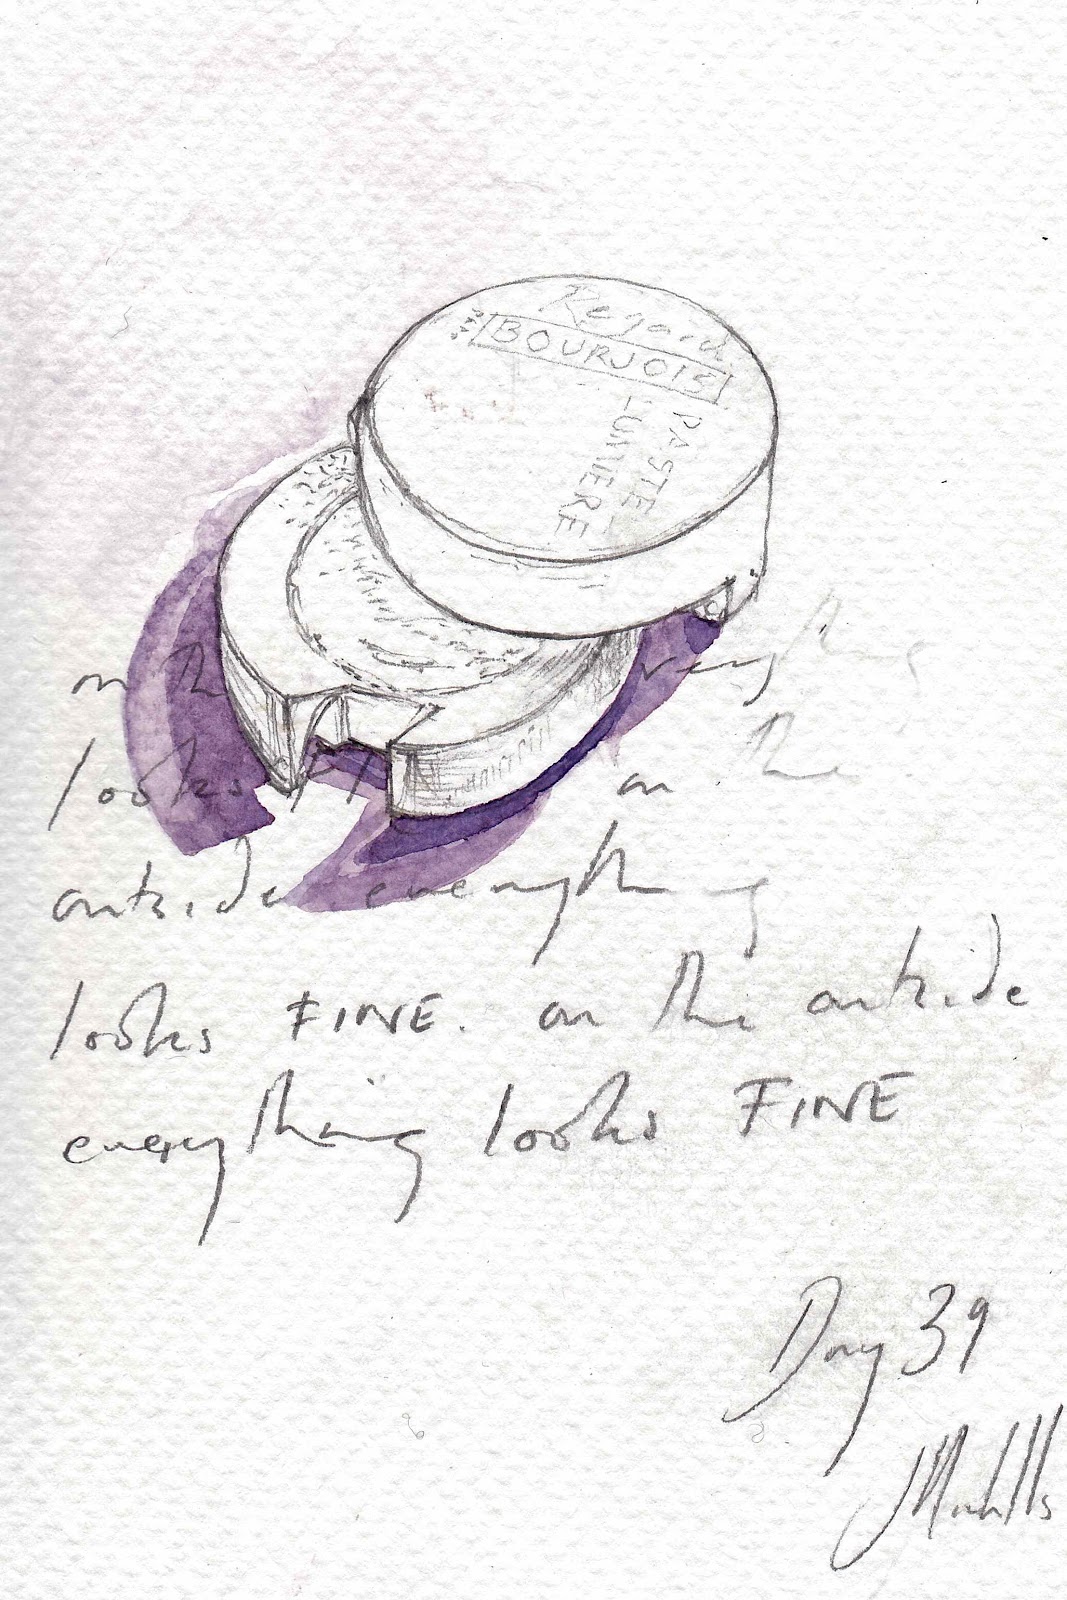 Regard
PARIS
BOURJOIS
PASTEL
LUMIERE
on the everything
looks on the
outside everything
looks FINE. on the outside
everything looks FINE
Day 39